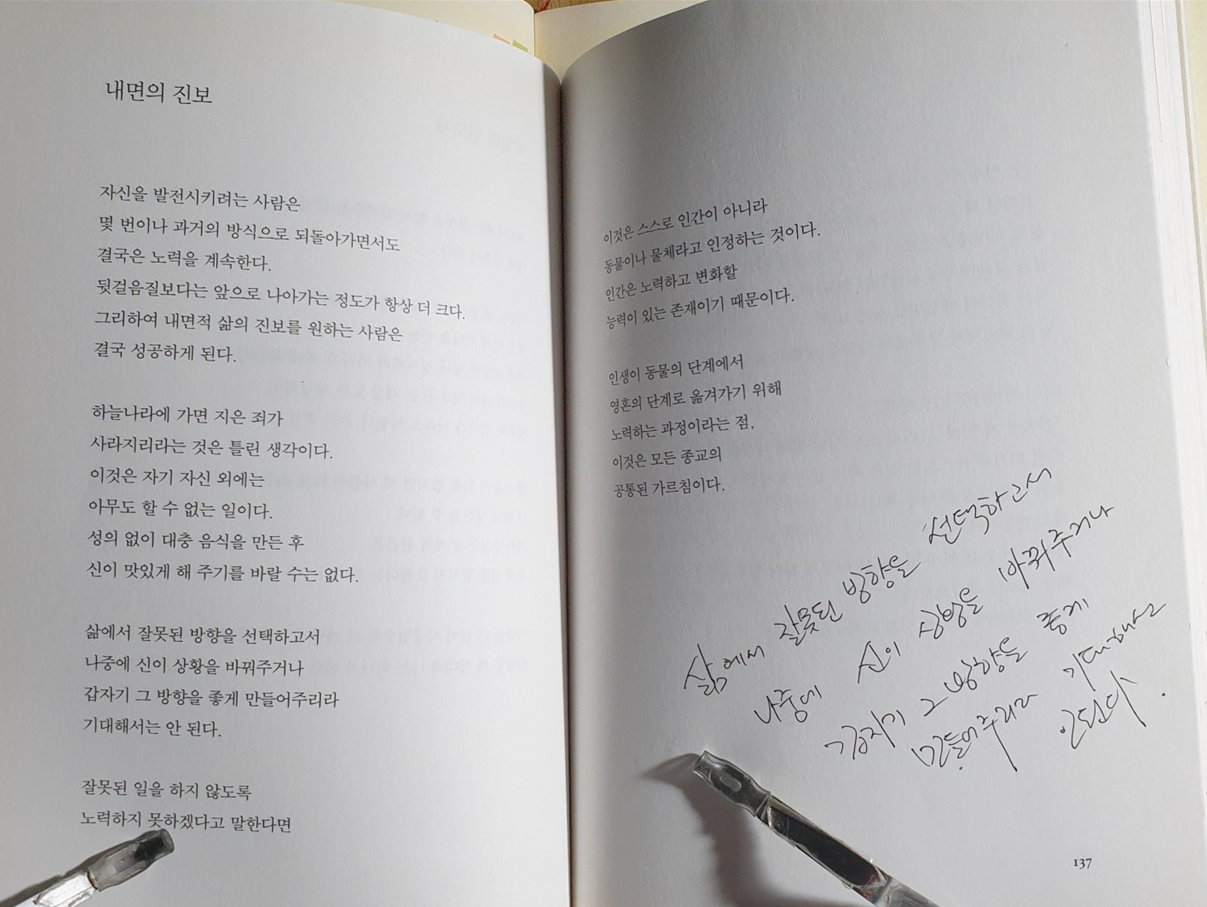 내면의 진보
자신을 발전시키려는 사람은
몇 번이나 과거의 방식으로 되돌아가면서도
결국은 노력을 계속한다.
뒷걸음질보다는 앞으로 나아가는 정도가 항상 더 크다.
그리하여 내면적 삶의 진보를 원하는 사람은
결국 성공하게 된다.
하늘나라에 가면 지은 죄가
사라지리라는 것은 틀린 생각이다.
이것은 자기 자신 외에는
아무도 할 수 없는 일이다.
성의 없이 대충 음식을 만든 후
신이 맛있게 해 주기를 바랄 수는 없다.
삶에서 잘못된 방향을 선택하고서
나중에 신이 상황을 바꿔주거나
갑자기 그 방향을 좋게 만들어주리라
기대해서는 안 된다.
잘못된 일을 하지 않도록
노력하지 못하겠다고 말한다면
이것은 스스로 인간이 아니라
동물이나 물체라고 인정하는 것이다.
인간은 노력하고 변화할
능력이 있는 존재이기 때문이다.
인생이 동물의 단계에서
영혼의 단계로 옮겨가기 위해
노력하는 과정이라는 점,
이것은 모든 종교의
공통된 가르침이다.
삶에서 잘못된 방향을 선택하고서
나중에 신이 상황을 바꿔주거나
갑자기 그 방향을 좋게
만들어주리라 기대해선
안된다.
137